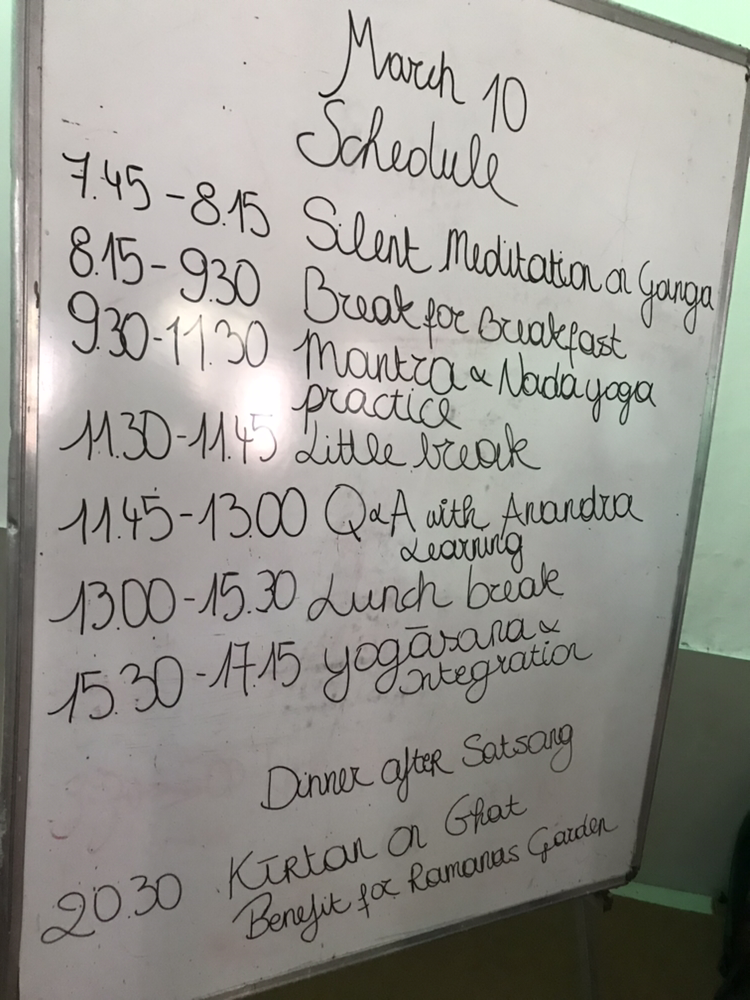 March 10
Schedule
7.45 - 8.15 Silent Meditation on Ganga
8.15 - 9.30 Break for Breakfast
9.30 - 11.30 Mantra & Nadayoga
practice
11.30 - 11.45 Little break
11.45 - 13.00 Q&A with Anandra
Learning
13.00 - 15.30 Lunch break
15.30 - 17.15 yogāsana &
Integration
Dinner after Satsang
20.30 Kīrtan on Ghat
Benefit for Ramanas Garden